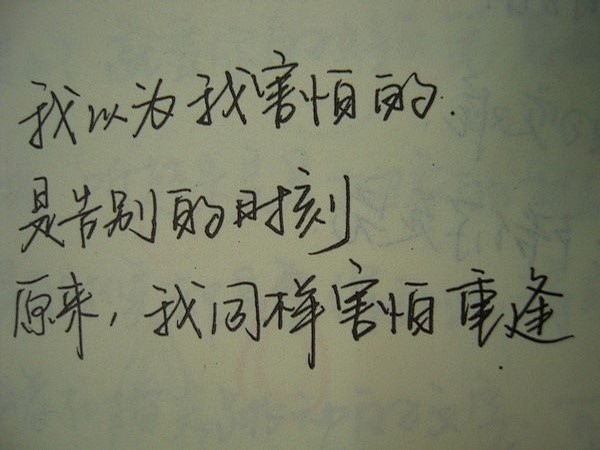 我以为我害怕的.
是告别的时刻
原来,我同样害怕重逢.